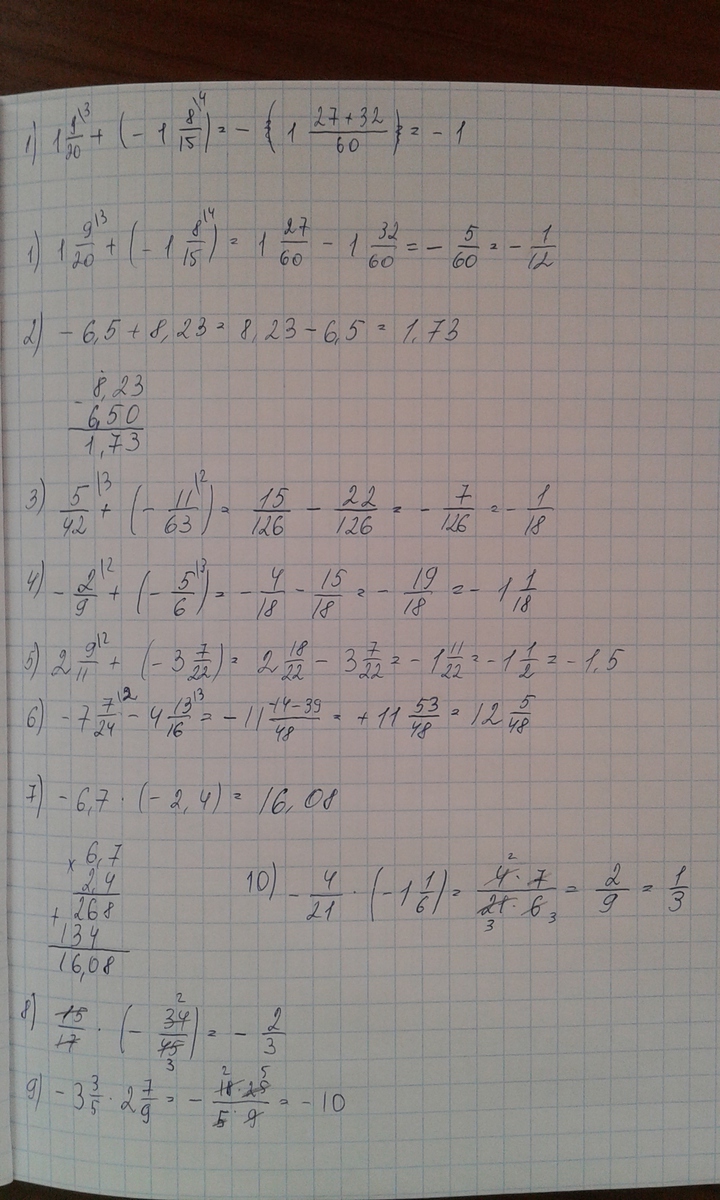 1) 1 9\3/20 + (- 1 8\4/15) = - (1 27+32/60) = - 1
1) 1 9\3/20 + (- 1 8\4/15) = 1 27/60 - 1 32/60 = - 5/60 = - 1/12
2) - 6,5 + 8,23 = 8,23 - 6,5 = 1,73
- 8,23
6,50
1,73
3) 5\3/42 + (- 11\2/63) = 15/126 - 22/126 = - 7/126 = - 1/18
4) - 2\2/9 + (- 5\3/6) = - 4/18 - 15/18 = - 19/18 = - 1 1/18
5) 2 9\2/11 + (- 3 7/22) = 2 18/22 - 3 7/22 = - 1 11/22 = - 1 1/2 = - 1,5
6) - 7 7\2/24 - 4 13\3/16 = - 11 -14-39/48 = + 11 53/48 = 12 5/48
7) - 6,7 · (- 2,4) = 16,08
x 6,7
2,4
+ 268
134
16,08
10) - 4/21 · (- 1 1/6) = 4 2 · 7/21 3 · 6 3 = 2/9 = 1/3
8) 15/17 · (- 34 2/45 3) = - 2/3
9) - 3 3/5 · 2 7/9 = - 18 2 · 25 5/5 · 9 = - 10